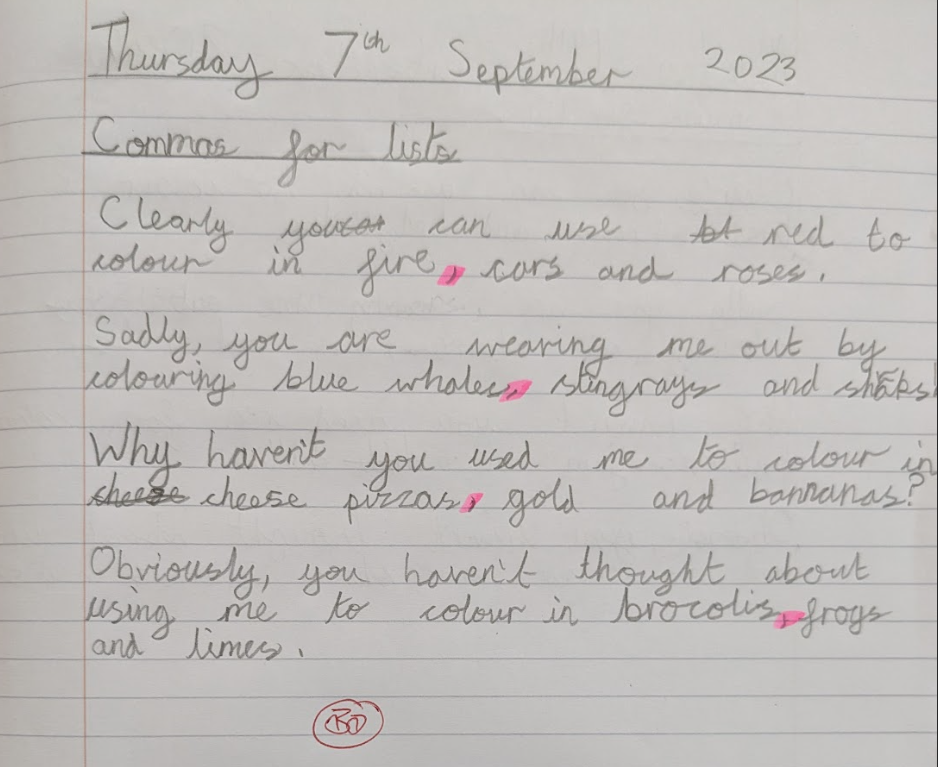 Thursday 7th September 2023
Commas for lists
Clearly you can use red to
colour in fire, cars and roses.
Sadly, you are wearing me out by
colouring blue whales, stingrays and
Why haven't you used me to colour in
cheese cheese pizzas, gold and bannanas?
Obviously, you haven't thought about
using me to colour in brocolis, frogs
and limes.